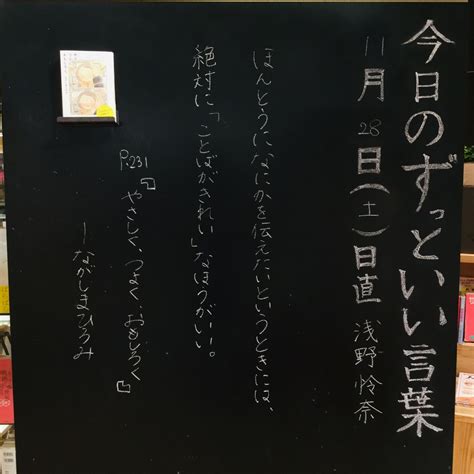 今日のずっといい言葉
11月28日(土)日直 浅野怜奈
ほんとうになにかを伝えたいというときには、
絶対に「ことばがきれい」なほうがいい。
P.231『やさしく、つよく、おもしろく』
―ながしまひろみ